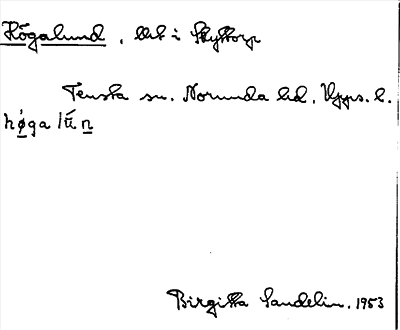 Högalund, del i Skyttorp
Tensta sn. Norunda hd. Upps. l.
høgalun
Birgitta Sandelin. 1953